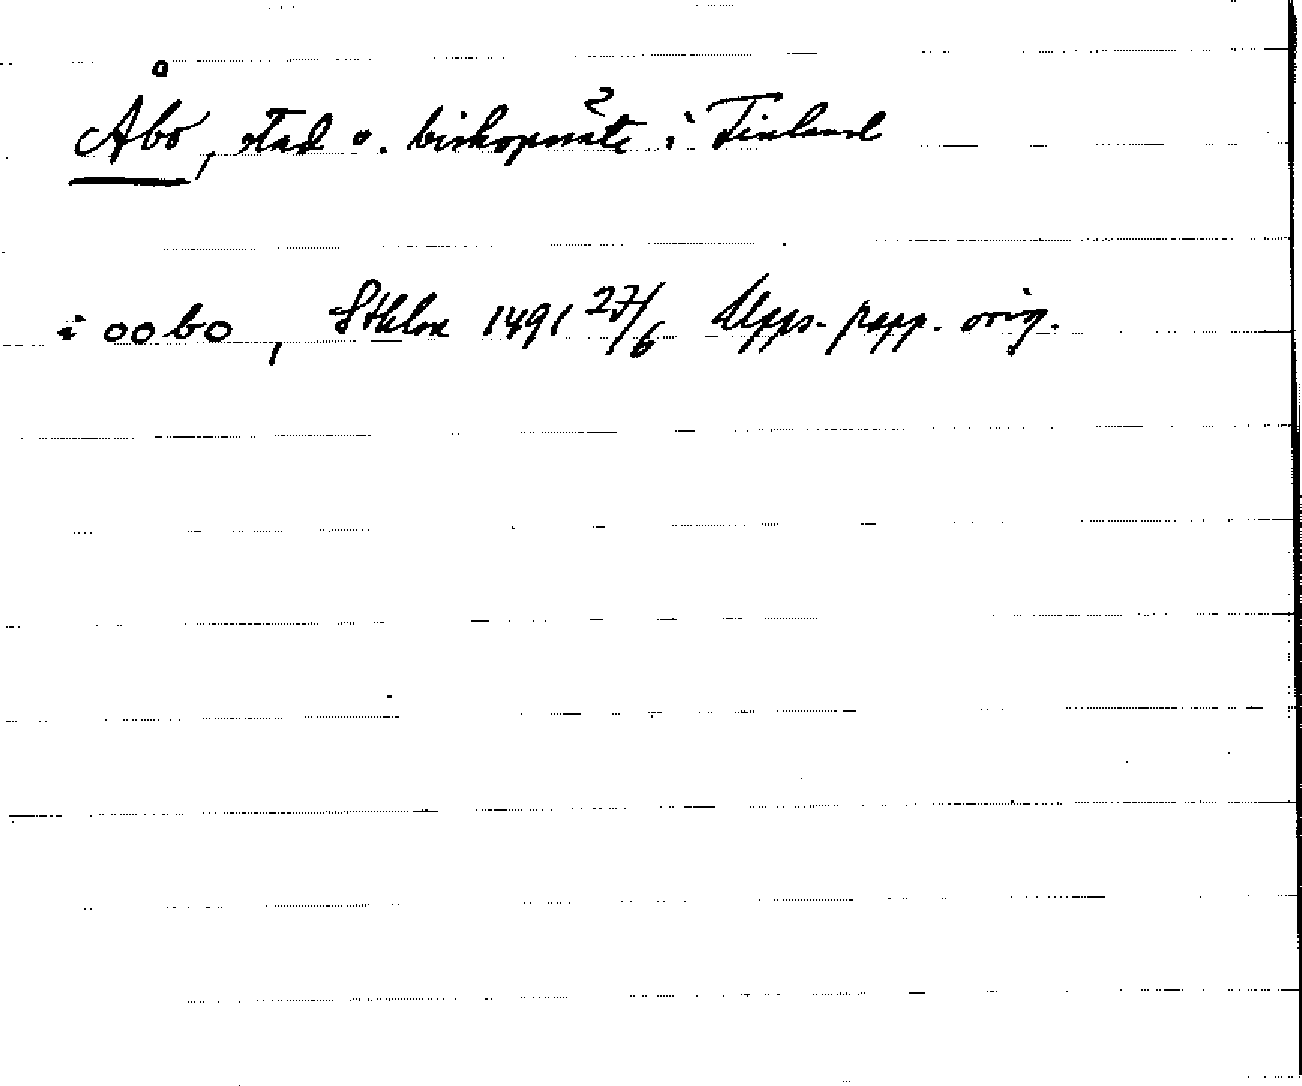 Åbo, stad o. biskopssäte i Finland
i oobo, Sthlm 1491 27/6 Upps. papp. orig.